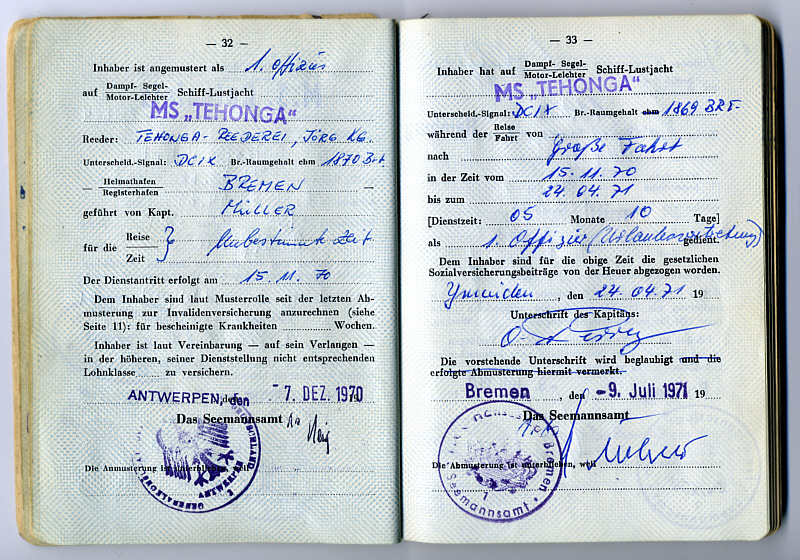 — 32 —
Inhaber ist angemustert als 1. Offizier
auf Dampf- Segel- Schiff-Lustjacht
Motor-Leichter
MS „TEHONGA“
Reeder: TEHONGA-REEDEREI, JÖRG KG.
Unterscheid.-Signal: DCIX Br.-Raumgehalt cbm 1870 Brt.
— Heimathafen BREMEN —
Registerhafen
geführt von Kapt. MÜLLER
für die Reise Unbestimmte Zeit
Zeit
Der Dienstantritt erfolgt am 15.11.70
Dem Inhaber sind laut Musterrolle seit der letzten Ab-
musterung zur Invalidenversicherung anzurechnen (siehe
Seite 11): für bescheinigte Krankheiten Wochen.
Inhaber ist laut Vereinbarung — auf sein Verlangen —
in der höheren, seiner Dienststellung nicht entsprechenden
Lohnklasse zu versichern.
ANTWERPEN, den - 7. DEZ. 1970
Das Seemannsamt
Die Anmusterung ist unterblieben,
— 33 —
Inhaber hat auf Dampf- Segel- Schiff-Lustjacht
Motor-Leichter
MS „TEHONGA“
Unterscheid.-Signal: DCIX Br.-Raumgehalt cbm 1869 BRT.
während der Reise von
Fahrt
nach Große Fahrt
in der Zeit vom 15.11.70
bis zum 24.04.71
[Dienstzeit: 05 Monate 10 Tage]
als 1. Offizier (Urlaubsvertretung) gedient.
Dem Inhaber sind für die obige Zeit die gesetzlichen
Sozialversicherungsbeiträge von der Heuer abgezogen worden.
Ymuiden, den 24.04.71 19
Unterschrift des Kapitäns:
Die vorstehende Unterschrift wird beglaubigt und die
erfolgte Abmusterung hiermit vermerkt.
Bremen, den -9. Juli 1971 19
Das Seemannsamt
Bremen
Seemannsamt
Die Abmusterung ist unterblieben, weil